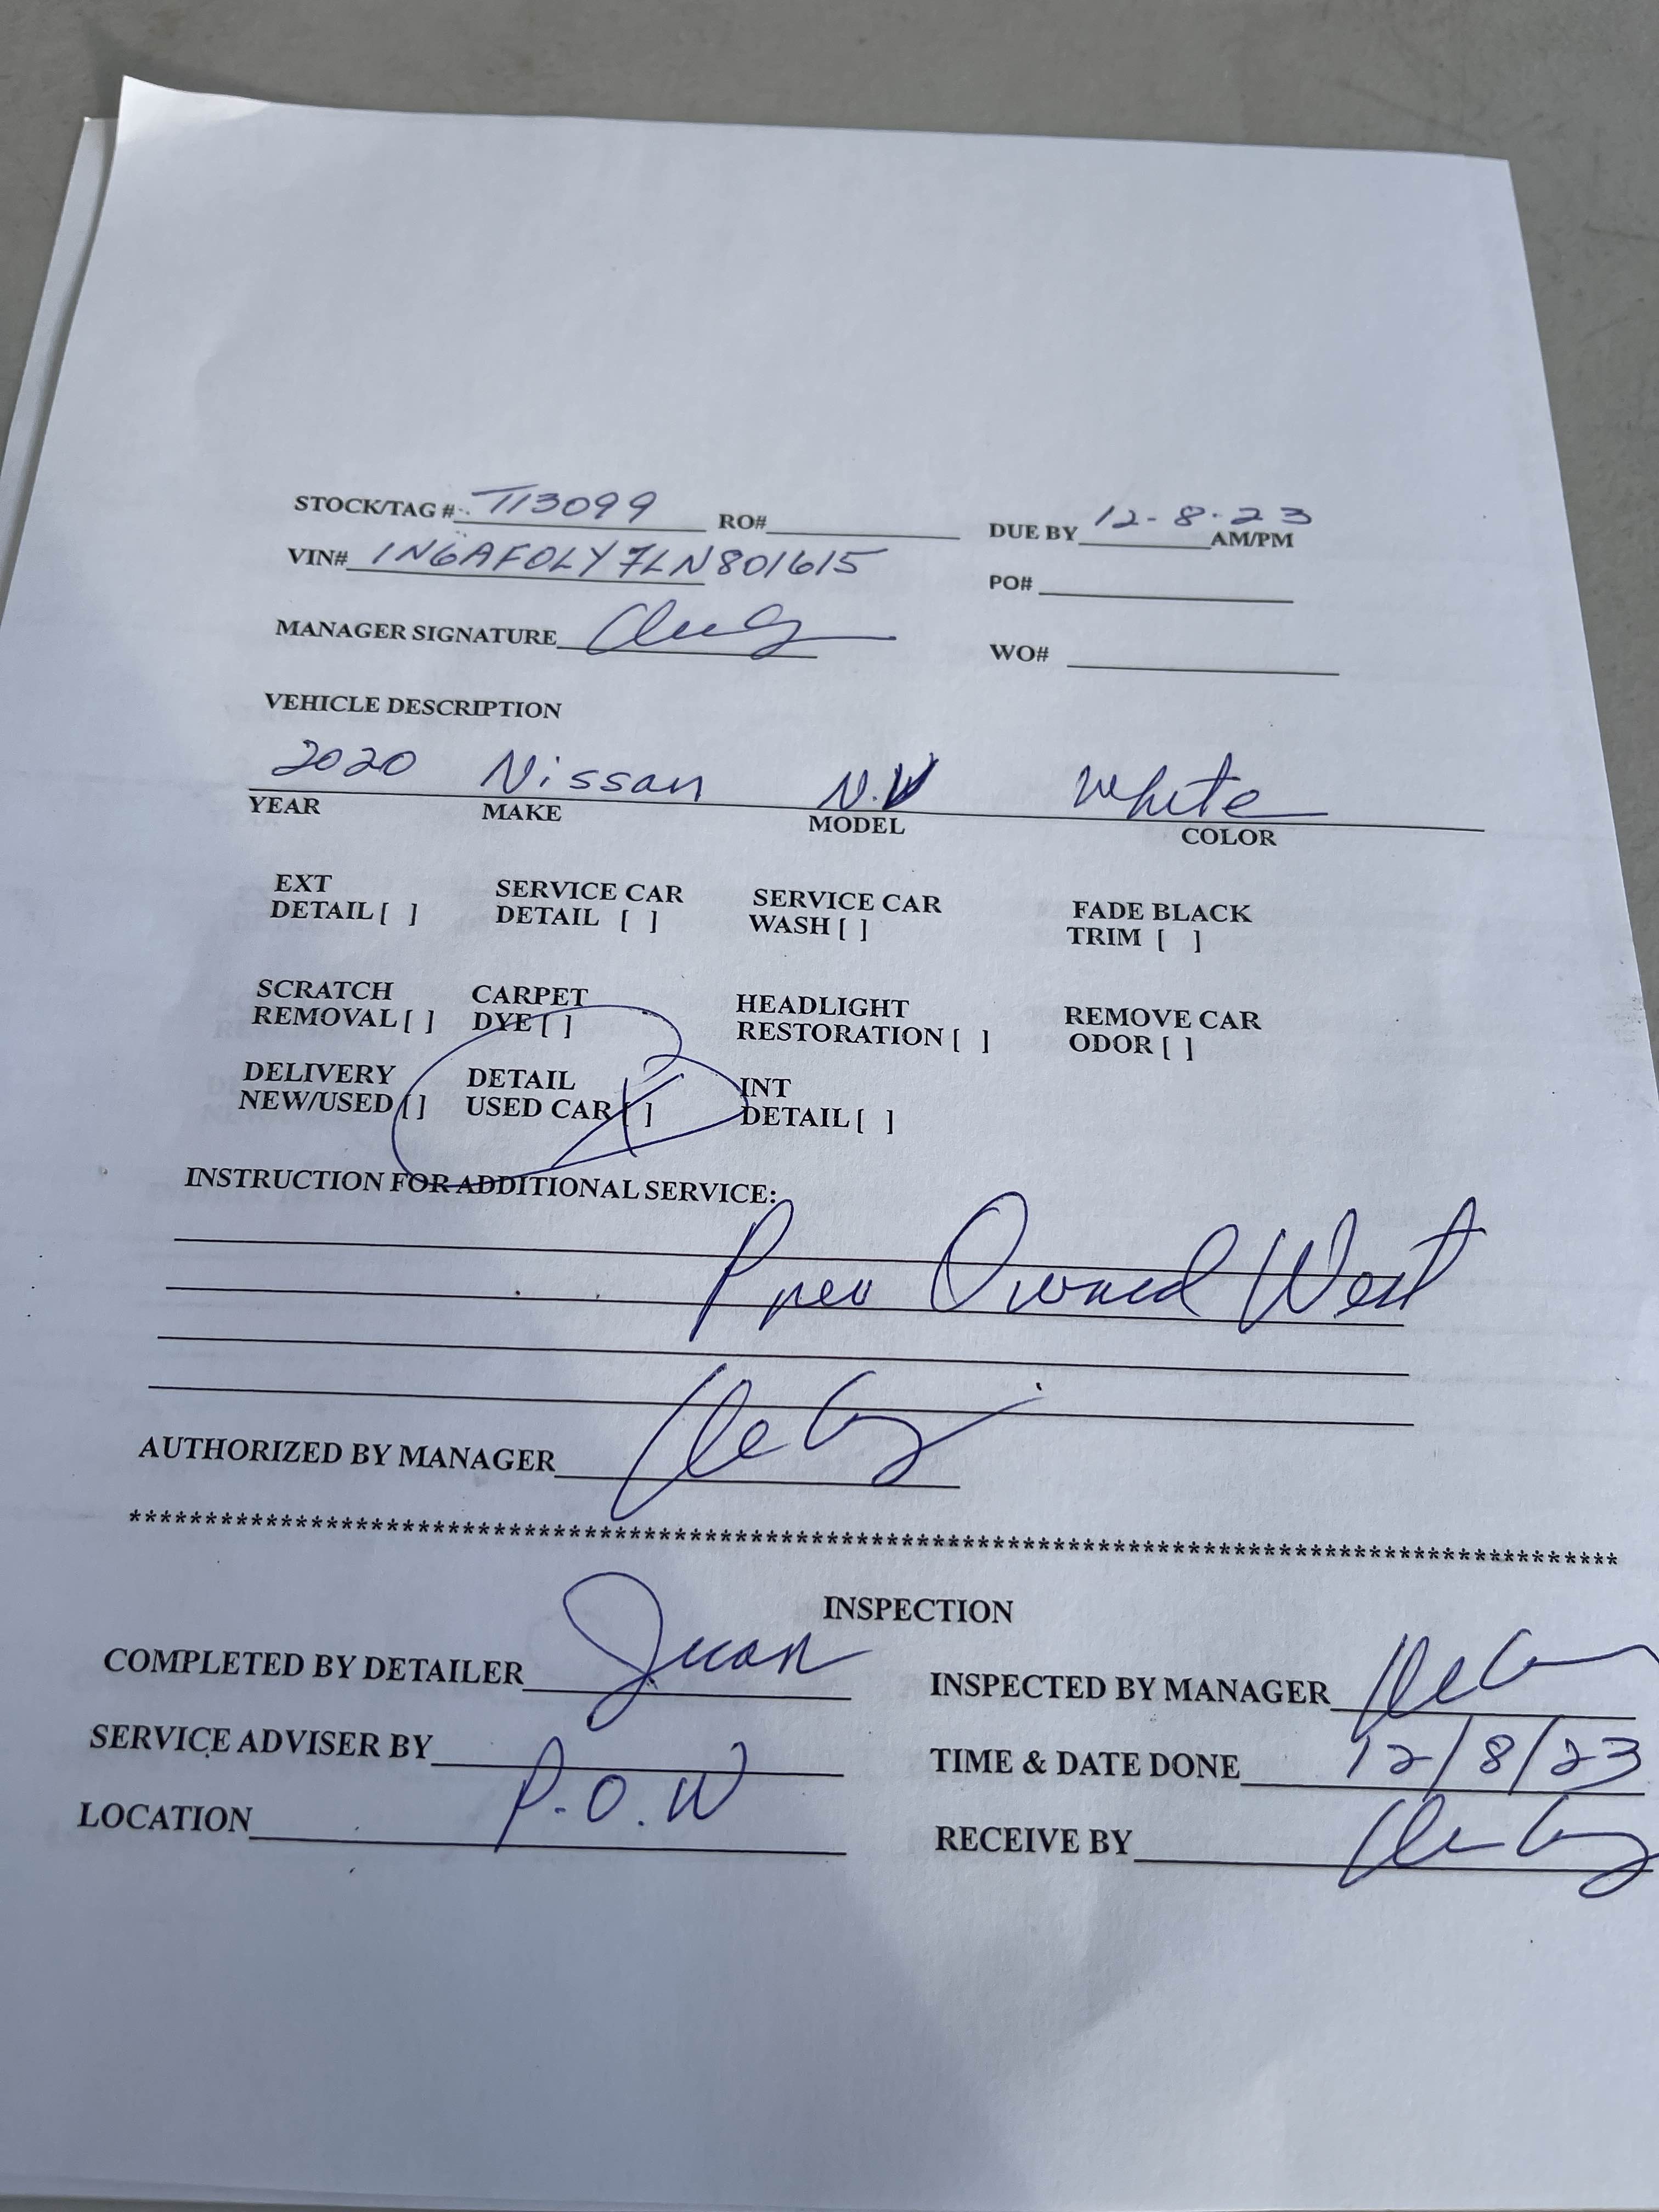 STOCK/TAG #: T13099 RO# DUE BY 12-8-23 AM/PM
VIN# 1N6AF0LY7LN801615 PO#
MANAGER SIGNATURE WO#
VEHICLE DESCRIPTION
2020 Nissan N.V White
YEAR MAKE MODEL COLOR
EXT DETAIL [ ] SERVICE CAR DETAIL [ ] SERVICE CAR WASH [ ] FADE BLACK TRIM [ ]
SCRATCH REMOVAL [ ] CARPET DYE [ ] HEADLIGHT RESTORATION [ ] REMOVE CAR ODOR [ ]
DELIVERY NEW/USED [ ] DETAIL USED CAR [ ] INT DETAIL [ ]
INSTRUCTION FOR ADDITIONAL SERVICE:
Prev Owned West
AUTHORIZED BY MANAGER
INSPECTION
COMPLETED BY DETAILER Juan INSPECTED BY MANAGER
SERVICE ADVISER BY TIME & DATE DONE 12/8/23
LOCATION P.O.W RECEIVE BY